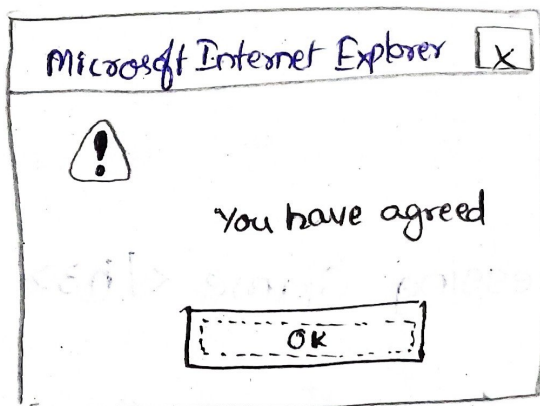 Microsoft Internet Explorer X
!
You have agreed
OK